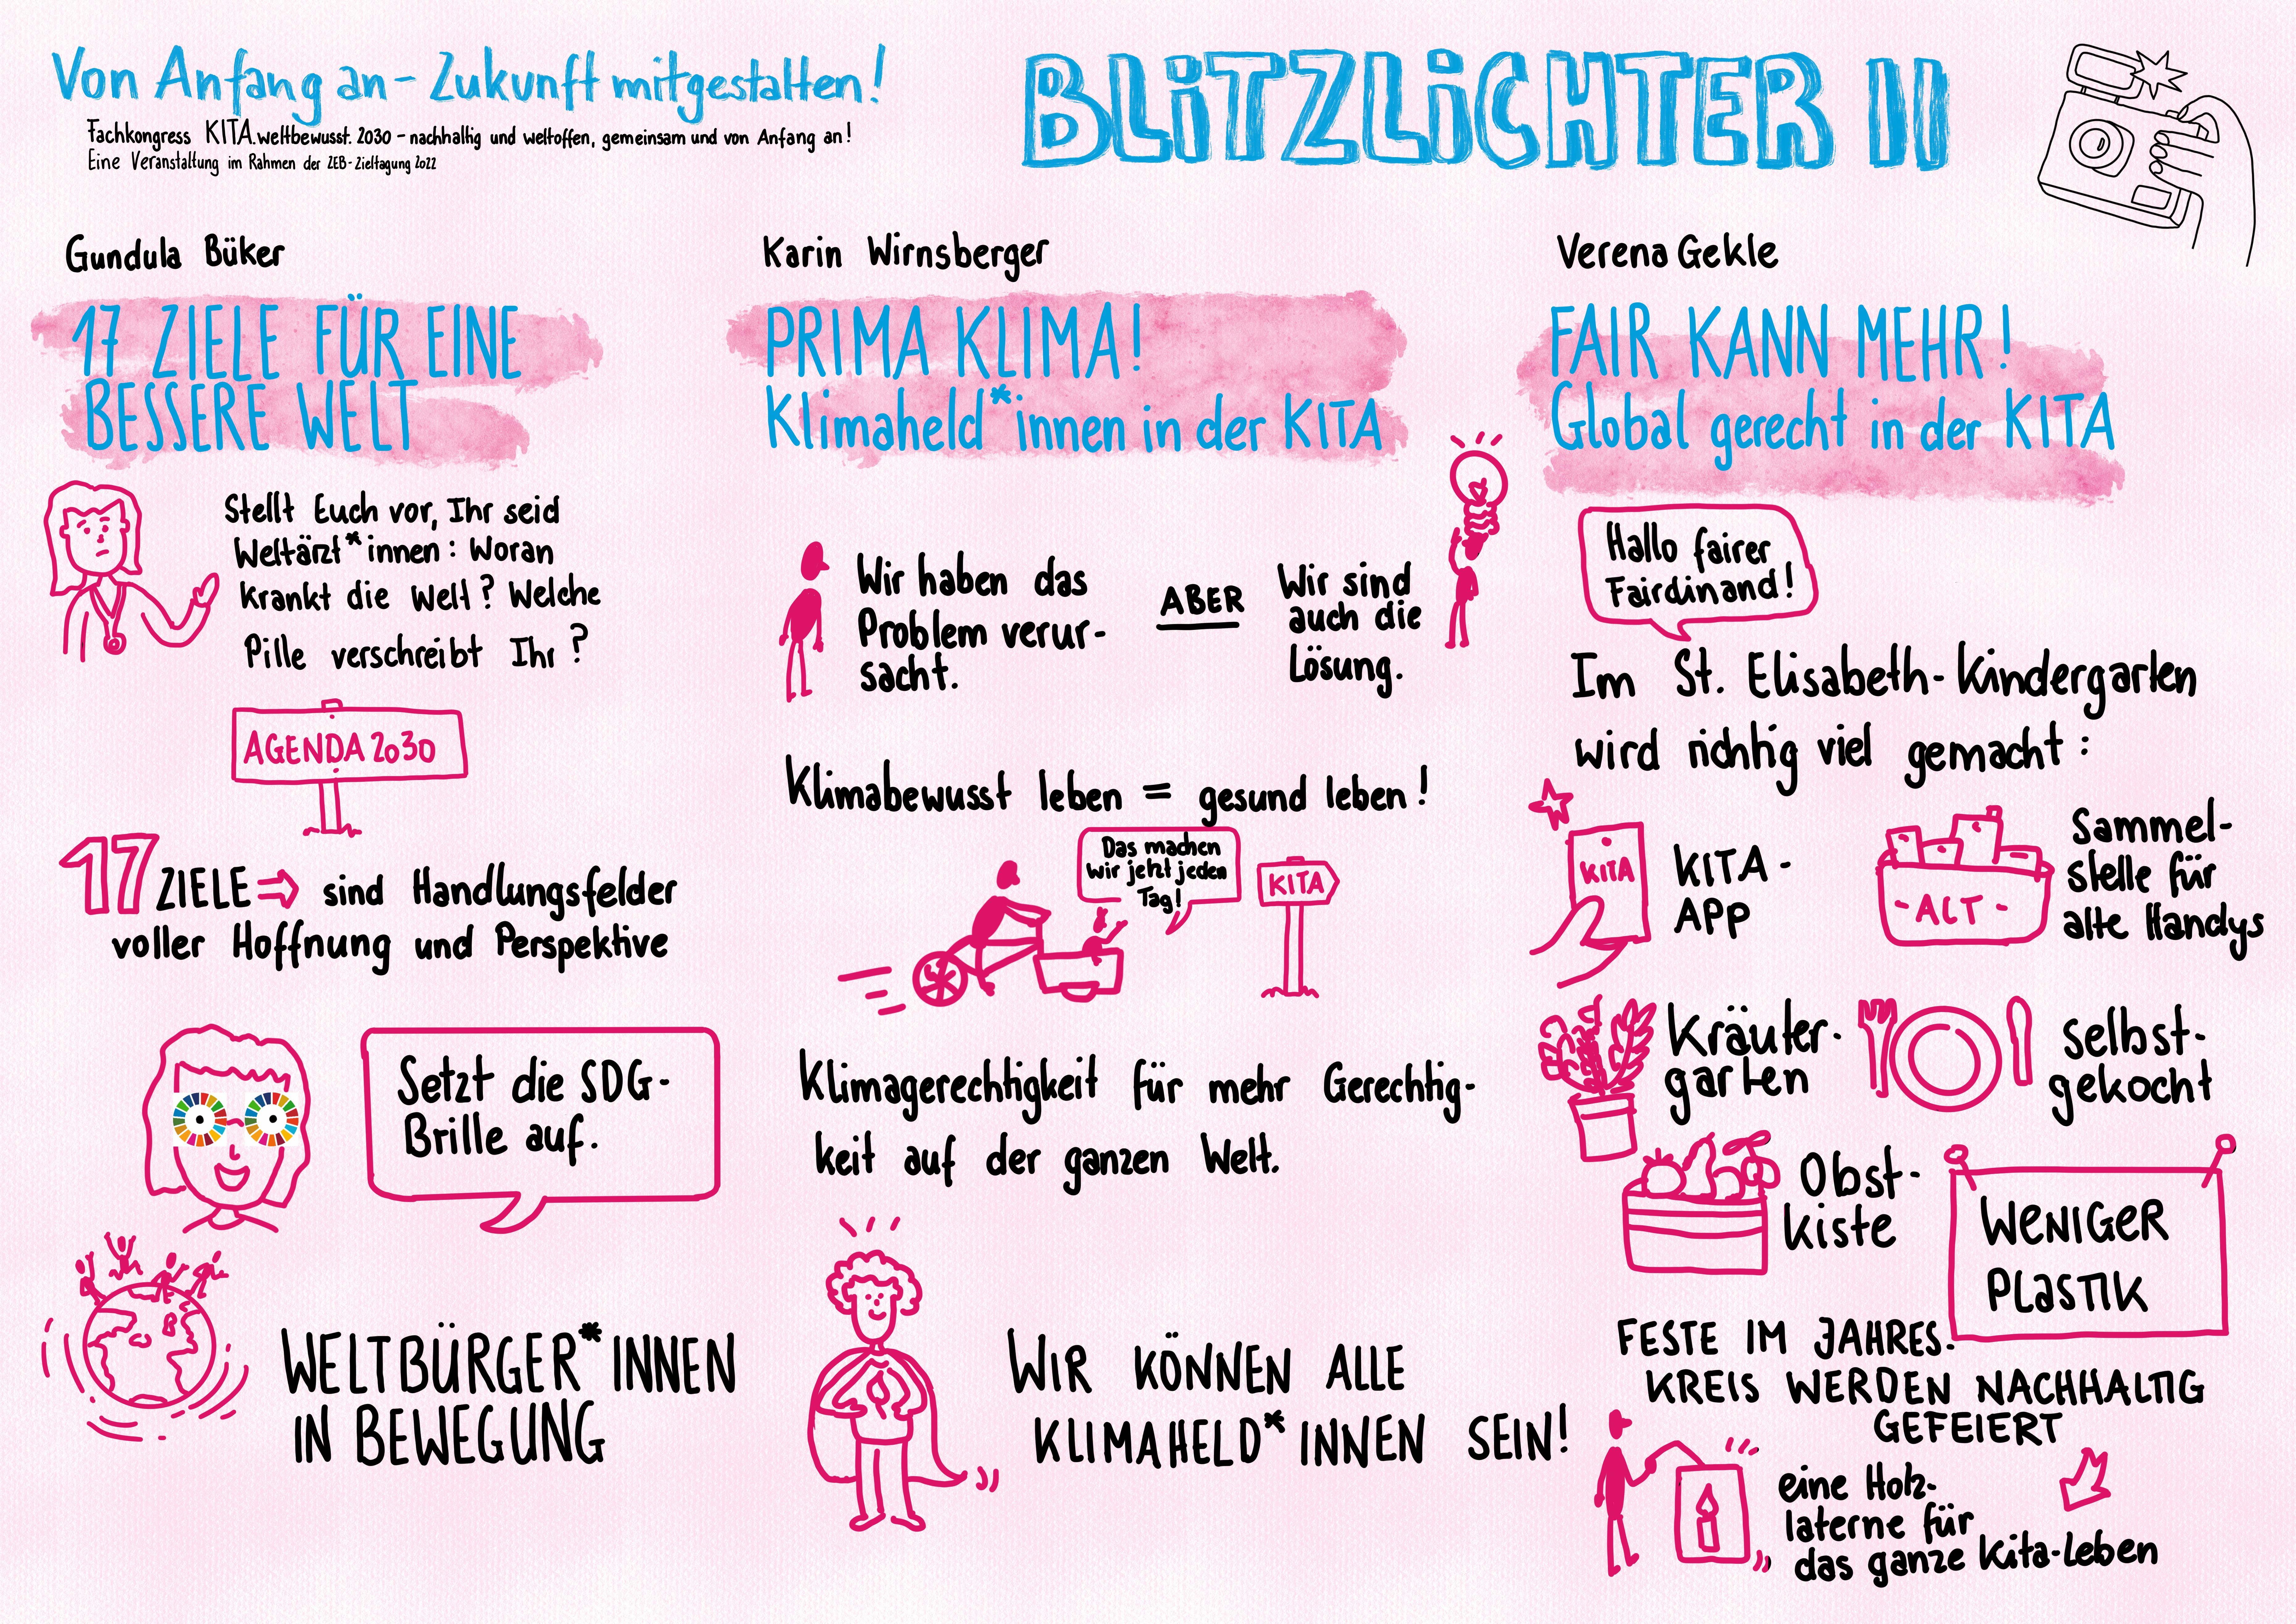 Von Anfang an - Zukunft mitgestalten!
Fachkongress KITA.weltbewusst. 2030 - nachhaltig und weltoffen, gemeinsam und von Anfang an!
Eine Veranstaltung im Rahmen der ZEB-Zieltagung 2022
BLiTZLiCHTER II
Gundula Büker
17 ZIELE FÜR EINE
BESSERE WELT
Stellt Euch vor, Ihr seid
Weltärzt*innen: Woran
krankt die Welt? Welche
Pille verschreibt Ihr?
AGENDA 2030
17 ZIELE ⇒ sind Handlungsfelder
voller Hoffnung und Perspektive
Setzt die SDG-
Brille auf.
WELTBÜRGER*INNEN
IN BEWEGUNG
Karin Wirnsberger
PRIMA KLIMA!
Klimaheld*innen in der KITA
Wir haben das
Problem verur-
sacht.
ABER
Wir sind
auch die
Lösung.
Klimabewusst leben = gesund leben!
Das machen
wir jetzt jeden
Tag!
KITA
Klimagerechtigkeit für mehr Gerechtig-
keit auf der ganzen Welt.
WIR KÖNNEN ALLE
KLIMAHELD*INNEN SEIN!
Verena Gekle
FAIR KANN MEHR!
Global gerecht in der KITA
Hallo fairer
Fairdinand!
Im St. Elisabeth-Kindergarten
wird richtig viel gemacht:
KITA
KITA-
APP
-ALT-
Sammel-
stelle für
alte Handys
Kräuter-
garten
selbst-
gekocht
Obst-
kiste
WENIGER
PLASTIK
FESTE IM JAHRES-
KREIS WERDEN NACHHALTIG
GEFEIERT
eine Holz-
laterne für
das ganze Kita-Leben